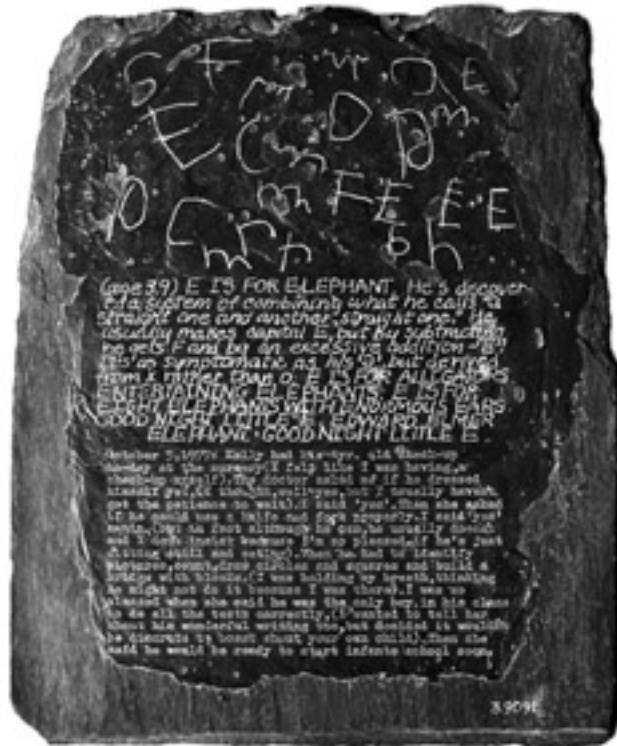 S F m r O E
E C m D P m
D m F E E E
E m r r b h
(age 3.9) E IS FOR ELEPHANT. He's discover
ed a system of combining what he calls "a
straight one and another straight one." He
usually makes capital E, but by subtraction
he gets F and by an excessive addition
it's as symptomatic as his but derived
from rather than o. E IS FOR ALLIGATORS
ENTERTAINING ELEPHANTS. E IS FOR
EIGHT ELEPHANTS WITH ENORMOUS EARS
GOOD NIGHT LITTLE E. EDWARD ELMER
ELEPHANT GOOD NIGHT LITTLE E.
October 5, 1977: Kelly had his yr. old check-up
to-day at the nursery (I felt like I was having a
check-up myself). The doctor asked me if he dressed
himself yet, (I usually haven't
got the patience to wait) I said 'yes'. Then she asked
if he used a knife and fork properly. I said 'yes'
again, (but in fact although he can, he usually doesn't
and I don't insist because I'm so pleased if he's just
sitting still and eating). Then he had to identify
pictures, count, draw circles and squares and build a
bridge with blocks. (I was holding my breath, thinking
he might not do it because I was there). I was so
pleased when she said he was the only boy in his class
to do all the tests correctly, (I wanted to tell her
about his wonderful writing too, but decided it would
be discrete to boast about your own child). Then she
said he would be ready to start infants school soon.
3.909E